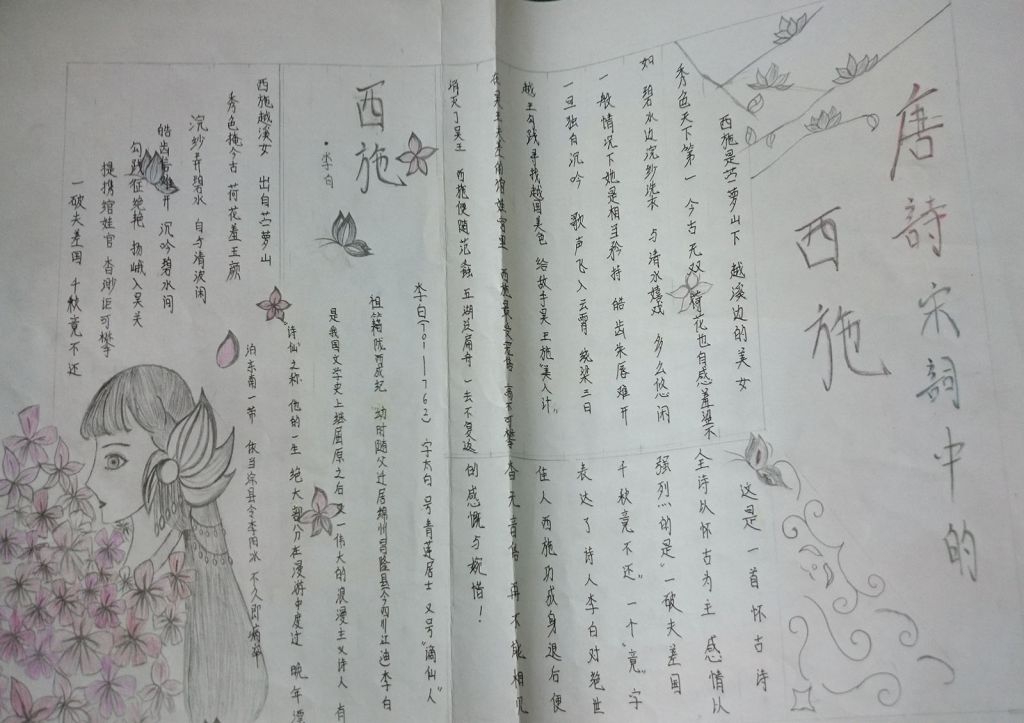 唐詩宋詞中的
西施
西施是苎萝山下 越溪边的美女
秀色天下第一 今古无双 荷花也自感羞涩不
如 碧水边浣纱洗衣 与清水嬉戏 多么悠闲
一般情况下她是相当矜持 皓齿朱唇难开
一旦独自沉吟 歌声飞入云霄 绕梁三日
越王勾践寻找越国美色 给敌手吴王施"美人计"
在吴王夫差的馆娃宫里 西施最受宠爱 高不可攀
消灭了吴王 西施便随范蠡 五湖泛扁舟 一去不复返
这是一首怀古诗
全诗以怀古为主 感情以
强烈的是"一破夫差国
千秋竟不还" 一个"竟"字
表达了诗人李白对绝世
佳人西施功成身退后便
杳无音信 再不能相见
的感慨与婉惜！
西施
·李白
西施越溪女 出自苎萝山
秀色掩今古 荷花羞玉颜
浣纱弄碧水 自与清波闲
皓齿信难开 沉吟碧水间
勾践征绝艳 扬蛾入吴关
提携馆娃宫 杳渺讵可攀
一破夫差国 千秋竟不还
李白(701—762) 字太白 号青莲居士 又号"谪仙人"
祖籍陇西成纪 幼时随父迁居绵州昌隆县今四川江油 李白
是我国文学史上继屈原之后又一伟大的浪漫主义诗人 有
"诗仙"之称 他的一生 绝大部分在漫游中度过 晚年漂
泊东南一带 依当涂县令李阳冰 不久即病卒